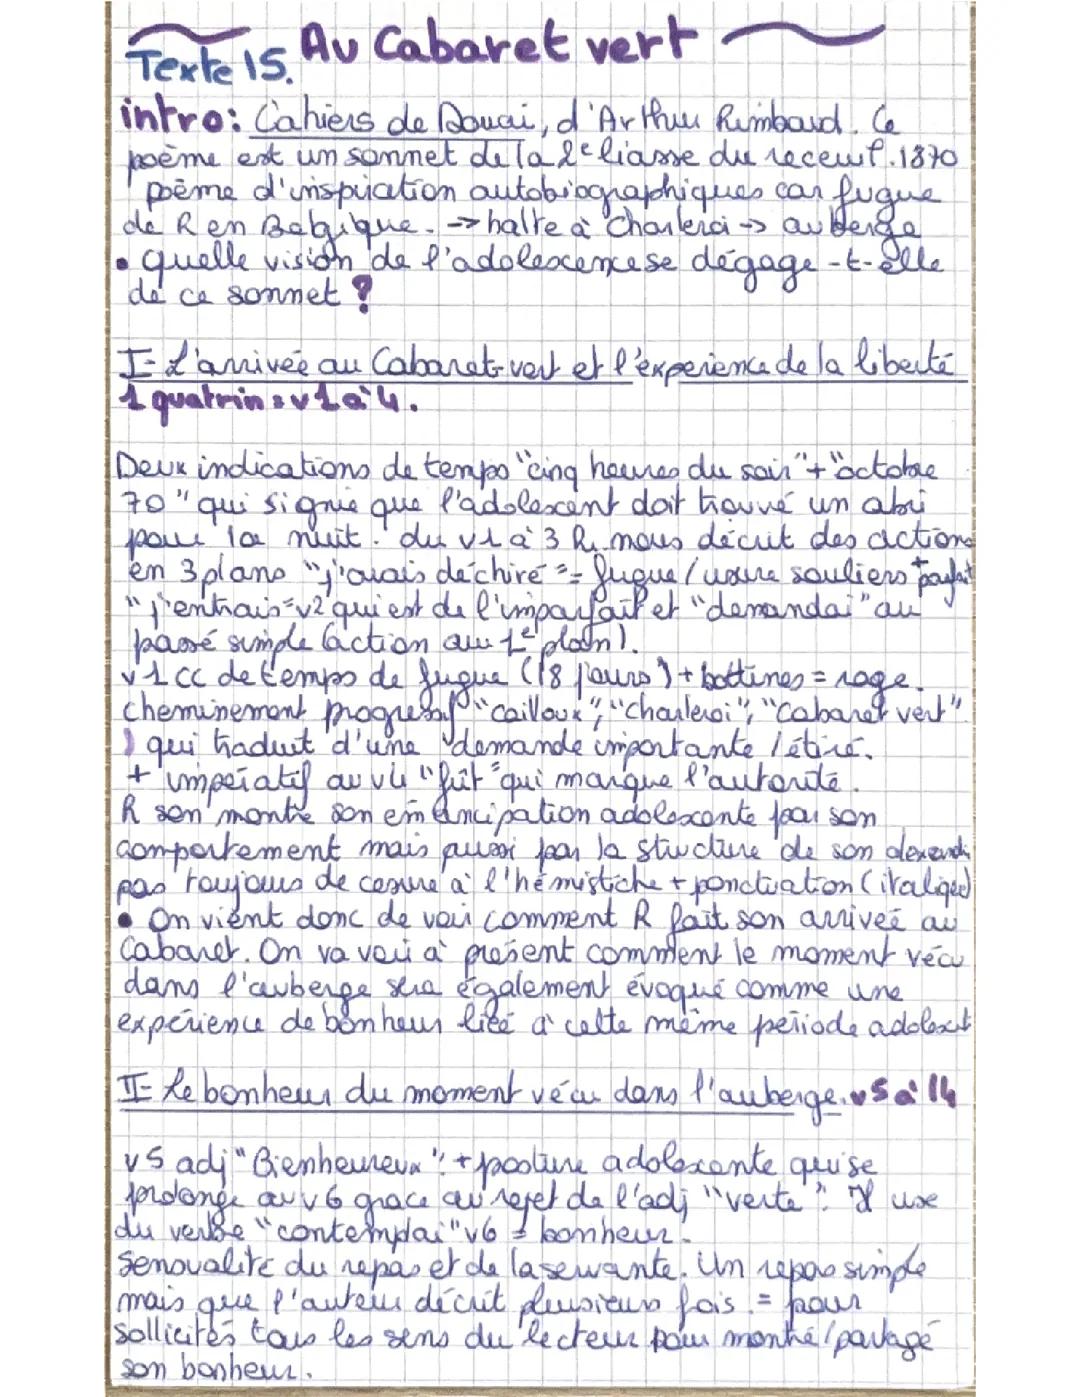 Au Cabaret vert
Texte 15.
intro: Cahiers de Douai, d'Arthur Rimbaud. Ce
poème est un sonnet de la 2e liasse du receuil. 1870
poème d'inspiration autobiographiques car fugue
de R en Belgique. -> halte à Charleroi -> auberge
• quelle vision de l'adolescence se dégage-t-elle
de ce sonnet ?
I- L'arrivée au Cabaret-vert et l'expérience de la liberté
1 quatrin : v1 à 4.
Deux indications de temps "cinq heures du soir" + "octobre
70" qui signie que l'adolescent doit trouvé un abri
pour la nuit. du v1 à 3 R. nous décrit des actions
en 3 plans "j'avais déchiré" = fugue / usure souliers + parfait
"j'entrais" v2 qui est de l'imparfait et "demandai" au
passé simple (action au 1e plan).
v1 cc de temps de fugue (18 jours) + bottines = rage.
cheminement progressif "cailloux", "Charleroi", "Cabaret vert"
) qui traduit d'une demande importante / étiré.
+ impératif au v4 "fût" qui marque l'autorité.
R son montre son émancipation adolescente par son
comportement mais aussi par la structure de son alexandri
pas toujours de cesure à l'hémistiche + ponctuation (italique)
• On vient donc de voir comment R fait son arrivée au
Cabaret. On va voir à présent comment le moment vécu
dans l'auberge sera également évoqué comme une
expérience de bonheur liée à cette même période adolesct
II- Le bonheur du moment vécu dans l'auberge. v5 à 14
v5 adj "Bienheureux" + posture adolescente qui se
prolonge au v6 grace au rejet de l'adj "verte". Il use
du verbe "contemplai" v6 = bonheur.
Senoualité du repas et de la servante. Un repas simple
mais que l'auteur décrit plusieurs fois. = pour
sollicités tous les sens du lecteur pour montré/partagé
son bonheur.